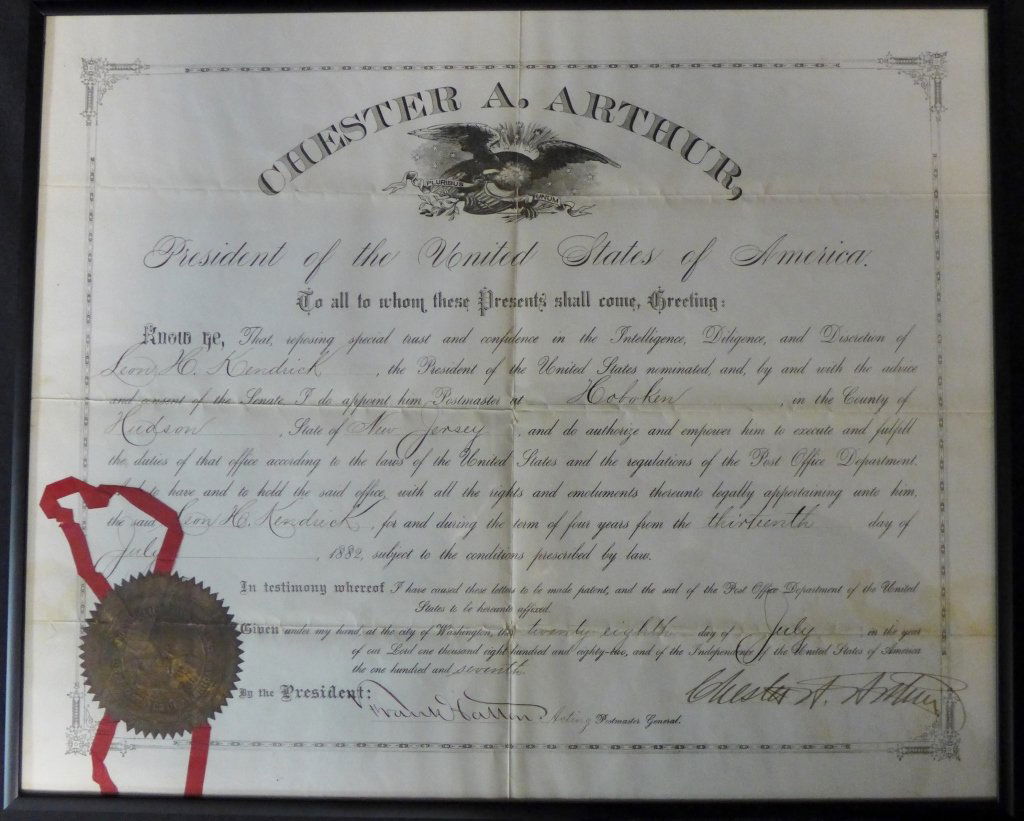 CHESTER A. ARTHUR,
E PLURIBUS UNUM
President of the United States of America.
To all to whom these Presents shall come, Greeting:
Know Ye, That, reposing special trust and confidence in the Intelligence, Diligence, and Discretion of
Leon H. Kendrick, the President of the United States nominated, and, by and with the advice
and consent of the Senate I do appoint him Postmaster at Hoboken, in the County of
Hudson, State of New Jersey, and do authorize and empower him to execute and fulfill
the duties of that office according to the laws of the United States and the regulations of the Post Office Department.
And to have and to hold the said office, with all the rights and emoluments thereunto legally appertaining unto him,
the said Leon H. Kendrick, for and during the term of four years from the thirteenth day of
July, 1882, subject to the conditions prescribed by law.
In testimony whereof I have caused these letters to be made patent, and the seal of the Post Office Department of the United
States to be hereunto affixed.
Given under my hand, at the city of Washington, this twenty eighth day of July in the year
of our Lord one thousand eight hundred and eighty-two, and of the Independence of the United States of America
the one hundred and seventh.
By the President:
Chester A. Arthur
Frank Hatton. Acting Postmaster General.